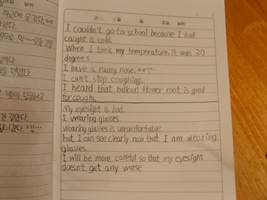 I couldn't go to school because I had
caught a cold.
When I took my temperature it was 37
degrees.
I have a runny nose.
I can't stop coughing.
I heard that balloon flower root is good
for coughs.
My eyesight is bad.
I wearing glasses.
Wearing glasses is uncomfortable
but I can see clearly now that I am wearing
glasses.
I will be more careful so that my eyesight
doesn't get any worse